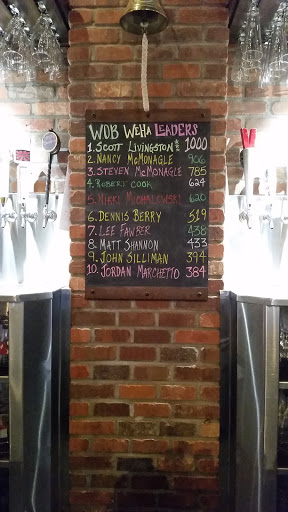 WOB WeHa Leaders
1. Scott Livingston 1000
2. Nancy McMonagle 906
3. Steven McMonagle 785
4. Robert Cook 624
5. Mikki Michalowski 620
6. Dennis Berry 519
7. Lee Fawber 438
8. Matt Shannon 433
9. John Silliman 394
10. Jordan Marchetto 384